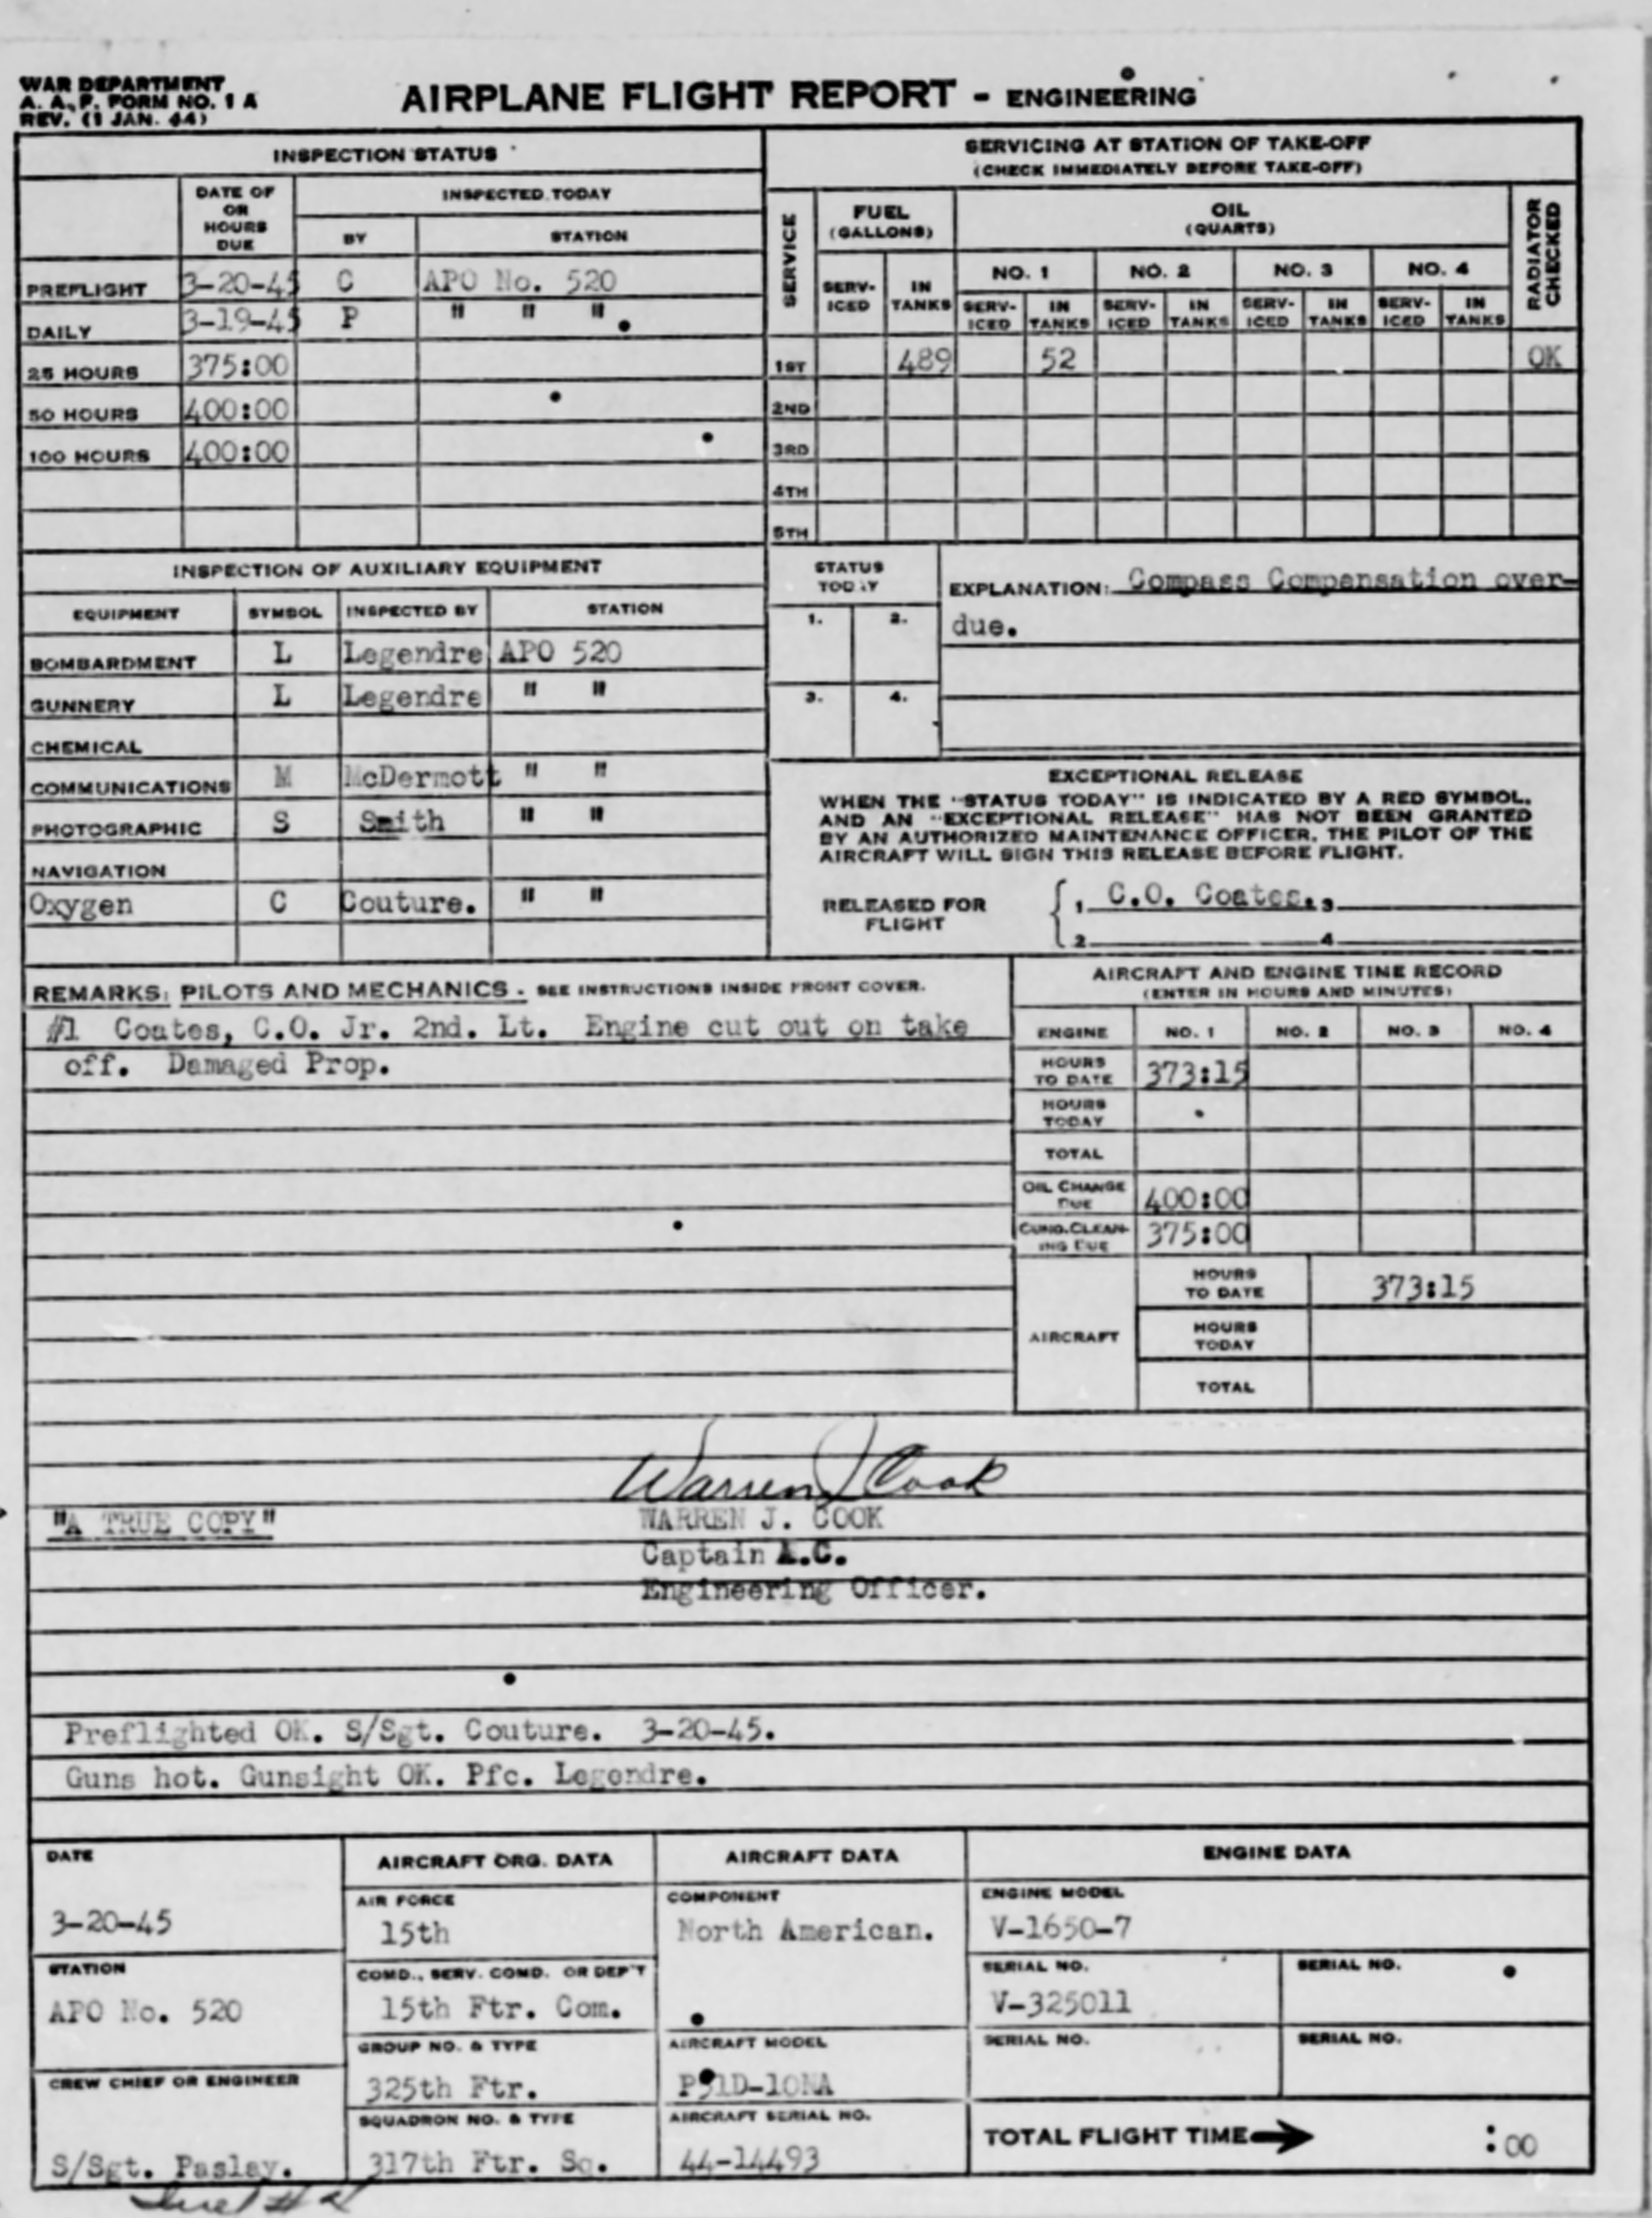 WAR DEPARTMENT
A. A. F. FORM NO. 1 A
REV. (1 JAN. 44)
AIRPLANE FLIGHT REPORT - ENGINEERING
INSPECTION STATUS
DATE OF OR HOURS DUE
INSPECTED TODAY
BY STATION
PREFLIGHT 3-20-45 C APO No. 520
DAILY 3-19-45 P " " "
25 HOURS 375:00
50 HOURS 400:00
100 HOURS 400:00
SERVICING AT STATION OF TAKE-OFF
(CHECK IMMEDIATELY BEFORE TAKE-OFF)
SERVICE
FUEL (GALLONS)
OIL (QUARTS)
RADIATOR CHECKED
NO. 1 NO. 2 NO. 3 NO. 4
SERV-ICED IN TANKS SERV-ICED IN TANKS SERV-ICED IN TANKS SERV-ICED IN TANKS SERV-ICED IN TANKS
1ST 489 52 OK
2ND
3RD
4TH
5TH
INSPECTION OF AUXILIARY EQUIPMENT
EQUIPMENT SYMBOL INSPECTED BY STATION
BOMBARDMENT L Legendre APO 520
GUNNERY L Legendre " "
CHEMICAL
COMMUNICATIONS M McDermott " "
PHOTOGRAPHIC S Smith " "
NAVIGATION
Oxygen C Couture. " "
STATUS TODAY
1. 2.
3. 4.
EXPLANATION: Compass Compensation over-
due.
EXCEPTIONAL RELEASE
WHEN THE "STATUS TODAY" IS INDICATED BY A RED SYMBOL,
AND AN "EXCEPTIONAL RELEASE" HAS NOT BEEN GRANTED
BY AN AUTHORIZED MAINTENANCE OFFICER, THE PILOT OF THE
AIRCRAFT WILL SIGN THIS RELEASE BEFORE FLIGHT.
RELEASED FOR FLIGHT
1 C.O. Coates. 3
2 4
REMARKS: PILOTS AND MECHANICS - SEE INSTRUCTIONS INSIDE FRONT COVER.
#1 Coates, C.O. Jr. 2nd. Lt. Engine cut out on take
off. Damaged Prop.
AIRCRAFT AND ENGINE TIME RECORD
(ENTER IN HOURS AND MINUTES)
ENGINE NO. 1 NO. 2 NO. 3 NO. 4
HOURS TO DATE 373:15
HOURS TODAY
TOTAL
OIL CHANGE DUE 400:00
CUNO. CLEAN-ING DUE 375:00
AIRCRAFT
HOURS TO DATE 373:15
HOURS TODAY
TOTAL
Warren J Cook
"A TRUE COPY" WARREN J. COOK
Captain A.C.
Engineering Officer.
Preflighted OK. S/Sgt. Couture. 3-20-45.
Guns hot. Gunsight OK. Pfc. Legendre.
DATE
3-20-45
STATION
APO No. 520
CREW CHIEF OR ENGINEER
S/Sgt. Paslay.
AIRCRAFT ORG. DATA
AIR FORCE
15th
COMD., SERV. COMD. OR DEP'T
15th Ftr. Com.
GROUP NO. & TYPE
325th Ftr.
SQUADRON NO. & TYPE
317th Ftr. Sq.
AIRCRAFT DATA
COMPONENT
North American.
AIRCRAFT MODEL
P51D-10NA
AIRCRAFT SERIAL NO.
44-14493
ENGINE DATA
ENGINE MODEL
V-1650-7
SERIAL NO. SERIAL NO.
V-325011
SERIAL NO. SERIAL NO.
TOTAL FLIGHT TIME :00